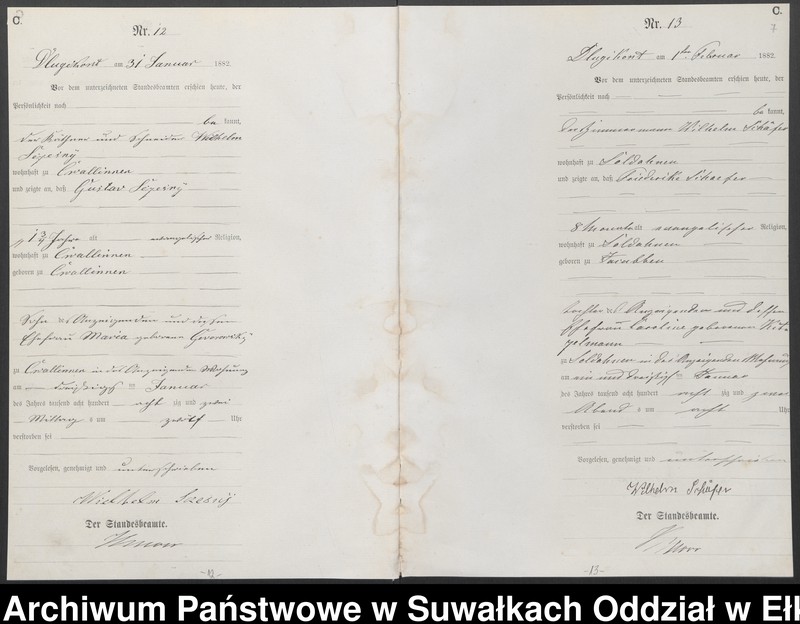 C.
Nr. 12
Dlugikont am 31 Januar 1882.
Vor dem unterzeichneten Standesbeamten erschien heute, der
Persönlichkeit nach
be kannt,
der Käthner und Schneider Wilhelm
wohnhaft zu Czvallinnen
und zeigte an, daß Gustav
Jahre alt evangelischer Religion,
wohnhaft zu
geboren zu
Sohn des Anzeigenden und dessen
Ehefrau Maria geborene
zu in des Anzeigenden Wohnung
am dreißigst en Januar
des Jahres tausend acht hundert acht zig und zwei
Mittag s um zwölf Uhr
verstorben sei
Vorgelesen, genehmigt und unterschrieben
Wielhelm Szesny
Der Standesbeamte.
-12-
C.
7
Nr. 13
Dlugikont am 1ten Februar 1882.
Vor dem unterzeichneten Standesbeamten erschien heute, der
Persönlichkeit nach
be kannt,
der Zimmermann Wilhelm Schäfer
wohnhaft zu Soldahnen
und zeigte an, daß Friederike Schaefer
8 Monate alt evangelischer Religion,
wohnhaft zu Soldahnen
geboren zu
Tochter des Anzeigenden und dessen
Ehefrau Caroline geborenen
zu Soldahnen in des Anzeigenden Wohnung
am ein und dreißigst en Januar
des Jahres tausend acht hundert acht zig und zwei
Abend s um acht Uhr
verstorben sei
Vorgelesen, genehmigt und unterschrieben
Wilhelm Schäfer
Der Standesbeamte.
-13-
Archiwum Państwowe w Suwałkach Oddział w Ełk